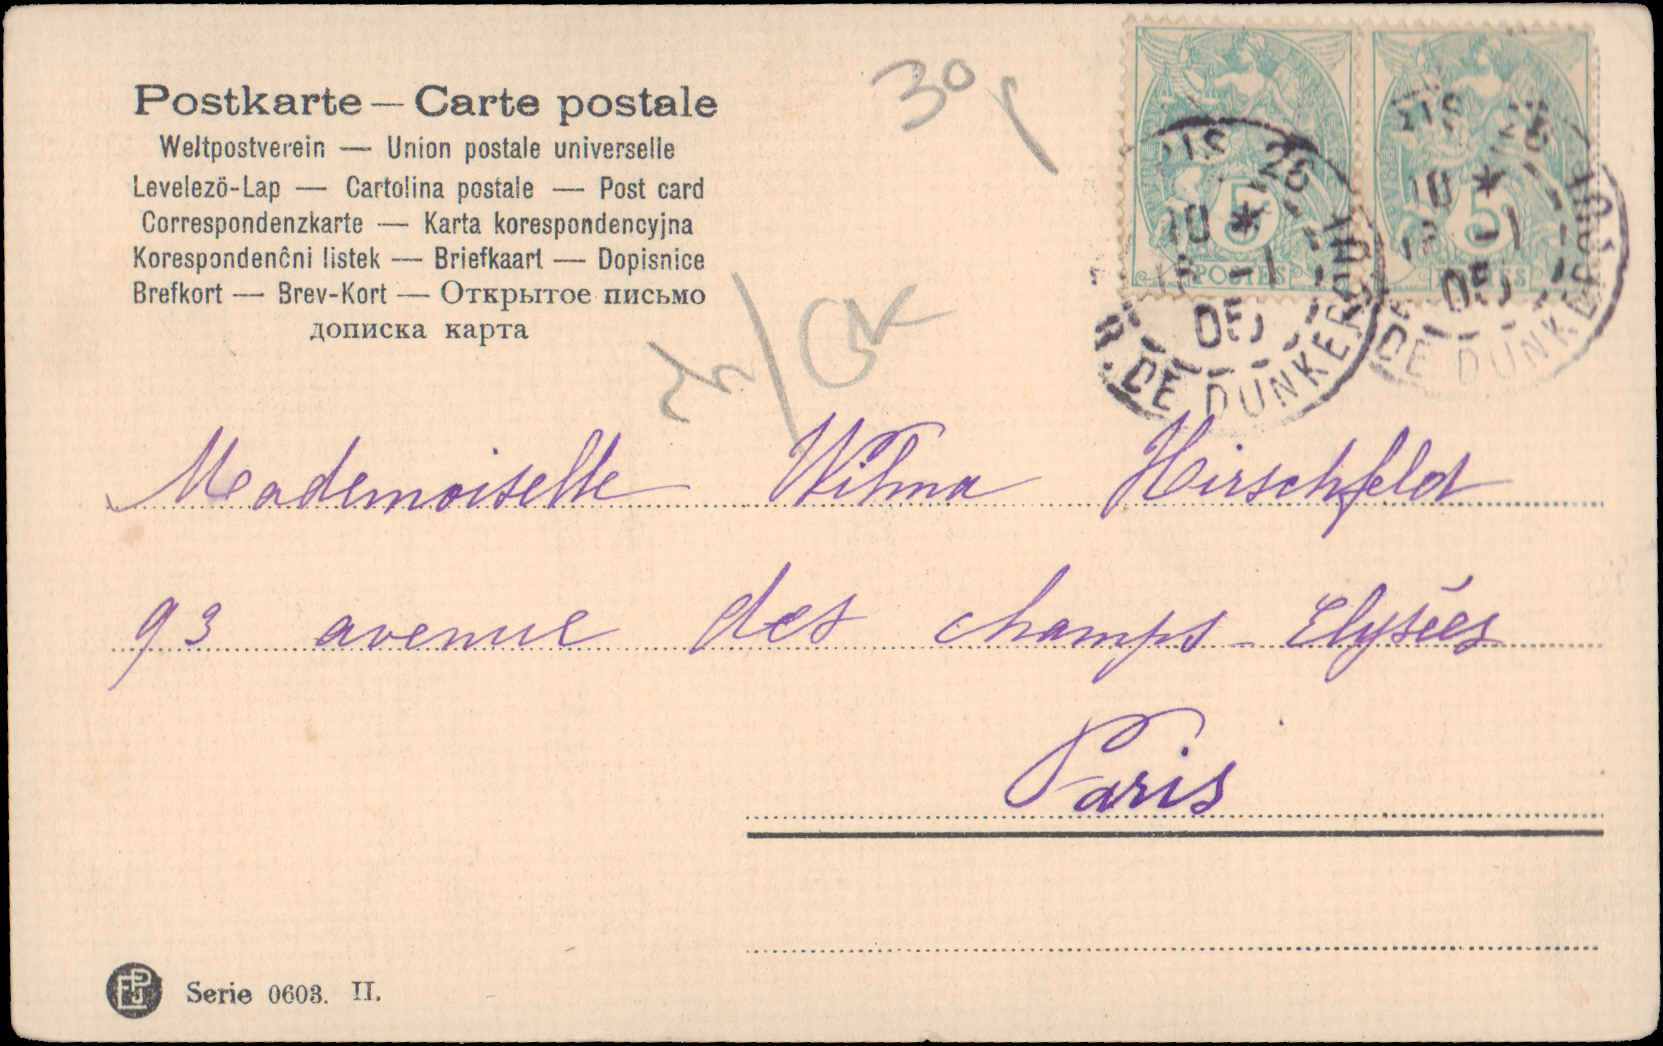 Postkarte — Carte postale
Weltpostverein — Union postale universelle
Levelezö-Lap — Cartolina postale — Post card
Correspondenzkarte — Karta korespondencyjna
Korespondenĉni listek — Briefkaart — Dopisnice
Brefkort — Brev-Kort — Открытое письмо
дописка карта
30
5
POSTES
5
PARIS 26
10 *
1
05
R. DE DUNKERQUE
Mademoiselle Wilma Hirschfeld
93 avenue des champs-Elysées
Paris
Serie 0603. II.